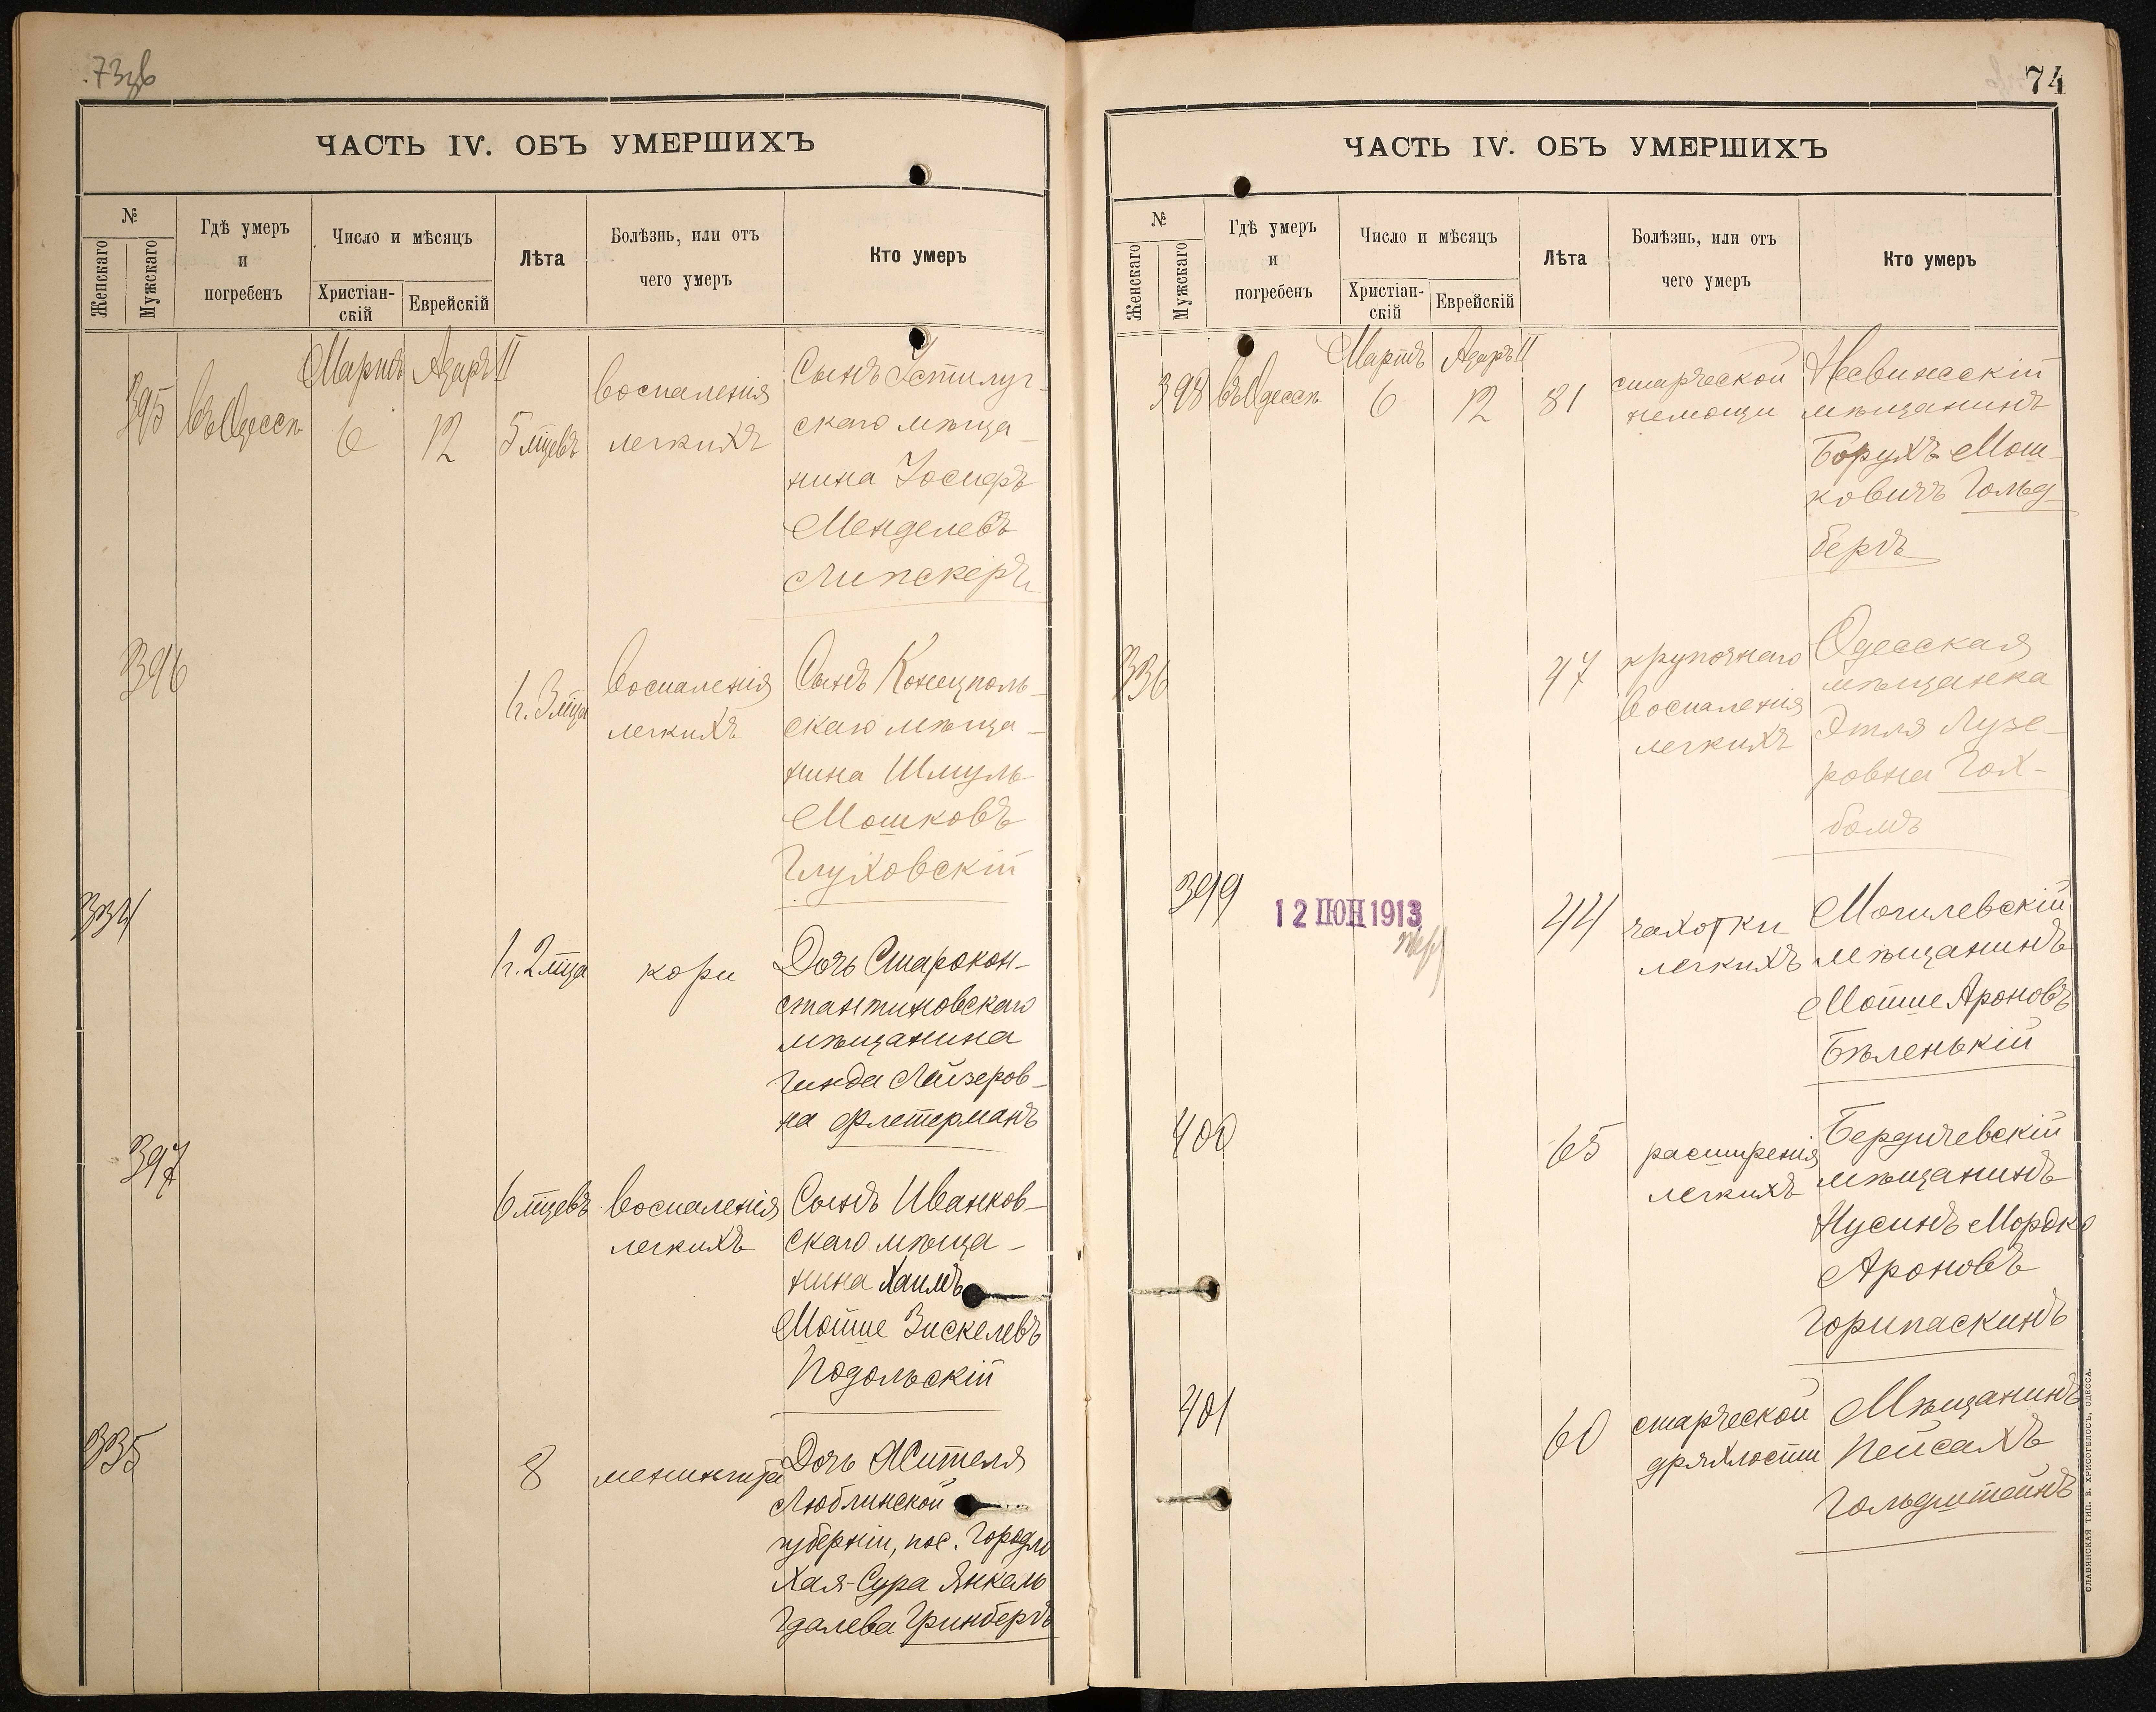 73об
ЧАСТЬ IV. ОБЪ УМЕРШИХЪ
№
Женскаго
Мужскаго
Гдѣ умеръ
и
погребенъ
Число и мѣсяцъ
Христіан-
скій
Еврейскій
Лѣта
Болѣзнь, или отъ
чего умеръ
Кто умеръ
Мартъ Адаръ II
395 въ Одессѣ 6 12 5 мцевъ
воспаленія
легкихъ
Сынъ Устилуг-
скаго мѣща-
нина Іосифъ
Менделевъ
Липскеръ
396
ч. 3 мца
воспаленія
легкихъ
Сынъ Конецполь-
скаго мѣща-
нина Шмуль-
Мошковъ
Глуховскій
334
ч. 2 мца
кори
Дочь Старокон-
стантиновскаго
мѣщанина
Гинда Лейзеров-
на Флетерманъ
397
6 мцевъ
воспаленія
легкихъ
Сынъ Иванков-
скаго мѣща-
нина Хаимъ
Мошше Зискелевъ
Подольскій
335
8
менингита
Дочь Жителя
Люблинской
губерніи, пос. Городло
Хая-Сура Янкель
Гдалева Гринбергъ
74
ЧАСТЬ IV. ОБЪ УМЕРШИХЪ
№
Женскаго
Мужскаго
Гдѣ умеръ
и
погребенъ
Число и мѣсяцъ
Христіан-
скій
Еврейскій
Лѣта
Болѣзнь, или отъ
чего умеръ
Кто умеръ
Мартъ Адаръ II
398 въ Одессѣ 6 12 81
старческой
немощи
Несвижскій
мѣщанинъ
Борухъ Мош-
ковичъ Гольд-
бергъ
336
47
крупознаго
воспаленія
легкихъ
Одесская
мѣщанка
Этля Лузе-
ровна Гох-
бомъ
399
12 ІЮН 1913
44
чахотки
легкихъ
Могилевскій
мѣщанинъ
Мошше Ароновъ
Бѣленькій
400
65
расширенія
легкихъ
Бердичевскій
мѣщанинъ
Нусинъ Мордко
Ароновъ
Горипаскинъ
401
60
старческой
дряхлости
Мѣщанинъ
Пейсахъ
Гольдштейнъ
СЛАВЯНСКАЯ ТИП. Е. ХРИСОГЕЛОСЪ, ОДЕССА.